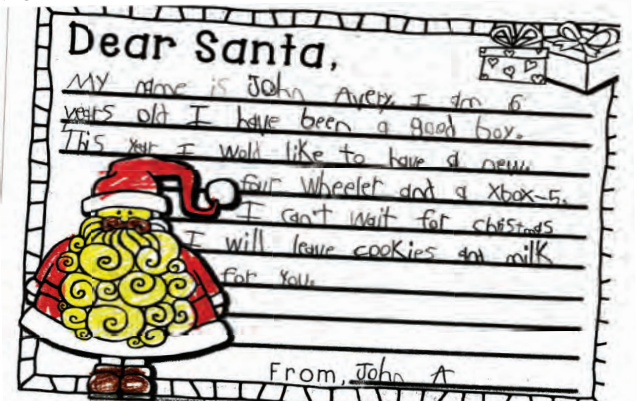 Dear Santa,
My name is John Avery. I am 6
years old I have been a good boy.
This year I wold like to have a new
four wheeler and a Xbox-5.
I can't wait for chistmas
I will leave cookies and milk
for you.
From, John A